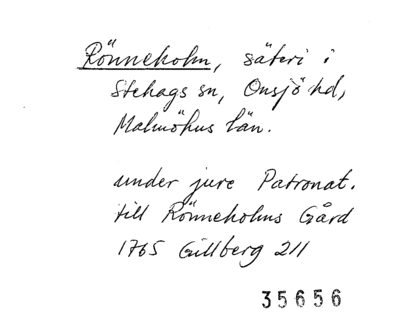 Rönneholm, säteri i
Stehags sn, Onsjö hd,
Malmöhus län.
under jure Patronat.
till Rönneholms Gård
1765 Gillberg 211
35656